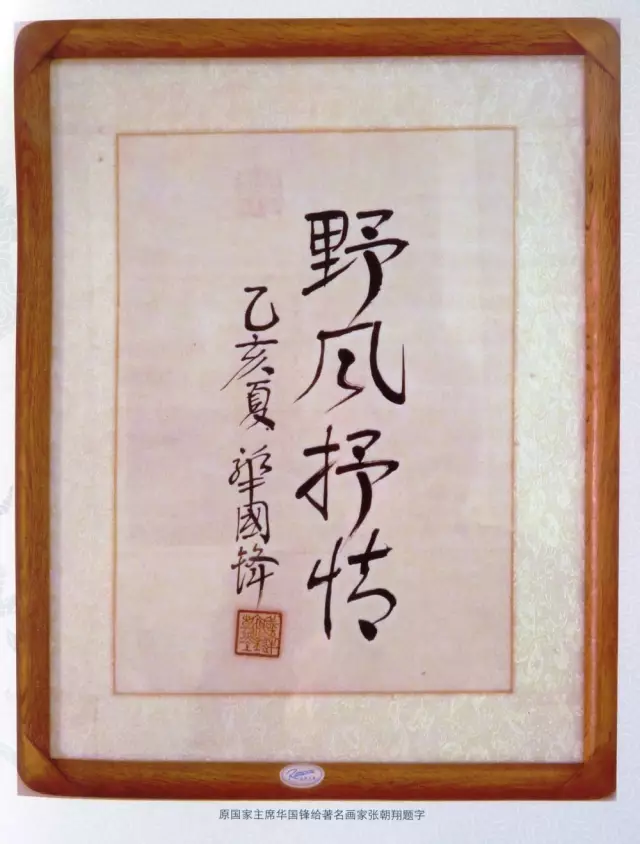 野风抒情
乙亥夏 华國锋
原国家主席华国锋给著名画家张朝翔题字